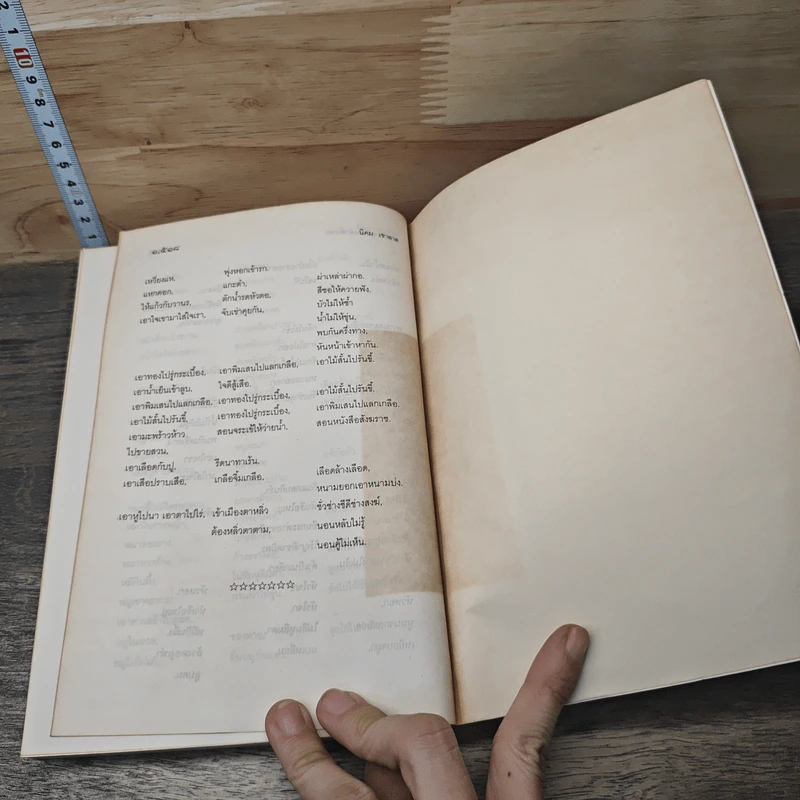 ๑,๕๑๘
นิคม เขาลาด
เหวี่ยงแห, พุ่งหอกเข้ารก, ฝ่าเหล่าฝ่ากอ,
แหยคอก, แกะดำ, สีซอให้ควายฟัง,
ให้แก้วกับวานร, ตักน้ำรดหัวตอ, บัวไม่ให้ช้ำ
เอาใจเขามาใส่ใจเรา, จับเข่าคุยกัน, น้ำไม่ให้ขุ่น,
พบกันครึ่งทาง,
หันหน้าเข้าหากัน,
เอาทองไปรู่กระเบื้อง, เอาพิมเสนไปแลกเกลือ, เอาไม้สั้นไปรันขี้,
เอาน้ำเย็นเข้าลูบ, ใจดีสู้เสือ,
เอาพิมเสนไปแลกเกลือ, เอาทองไปรู่กระเบื้อง, เอาไม้สั้นไปรันขี้,
เอาไม้สั้นไปรันขี้, เอาทองไปรู่กระเบื้อง, เอาพิมเสนไปแลกเกลือ,
เอามะพร้าวห้าว สอนจระเข้ให้ว่ายน้ำ, สอนหนังสือสังฆราช,
ไปขายสวน,
เอาเลือดกับปู, รีดนาทาเร้น,
เอาเสือปราบเสือ, เกลือจิ้มเกลือ, เลือดล้างเลือด,
หนามยอกเอาหนามบ่ง,
เอาหูไปนา เอาตาไปไร่, เข้าเมืองตาหลิ่ว ชั่วช่างชีดีช่างสงฆ์,
ต้องหลิ่วตาตาม, นอนหลับไม่รู้
นอนคู้ไม่เห็น,
☆☆☆☆☆☆☆
2 1 10 9 8 7 6 5 4 3 2 1